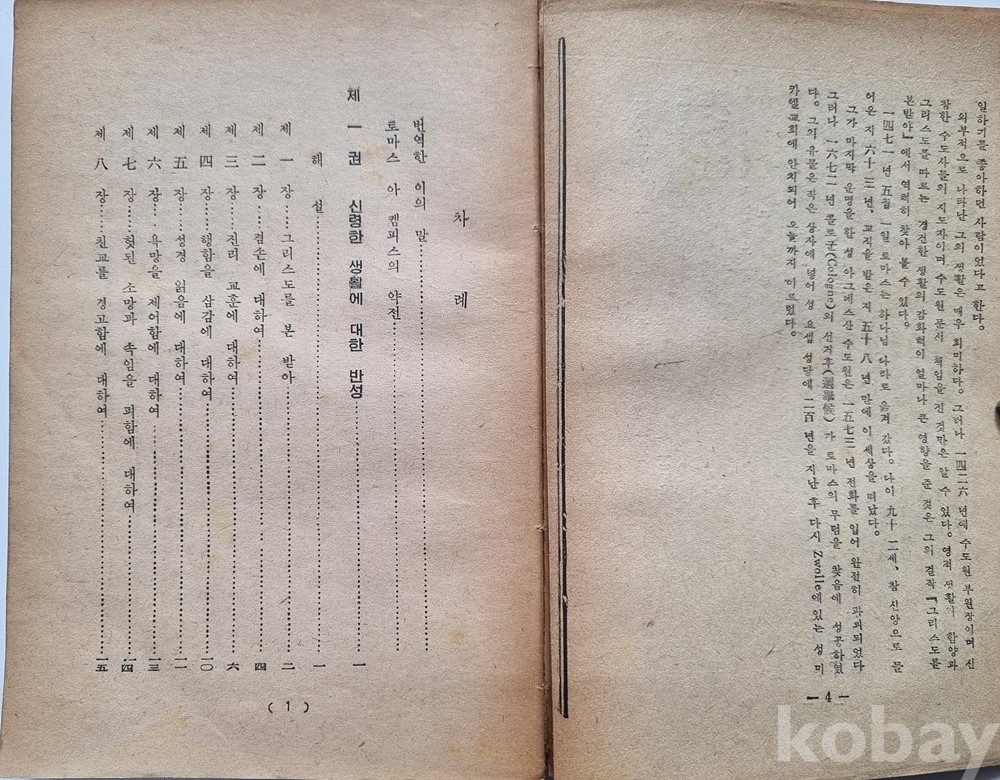 일하기를 좋아하던 사람이었다고 한다.
외부적으로 나타난 그의 생활은 매우 희미하다. 그러나 一四二六 년에 수도원 부원장이며 신
참한 수도사들의 지도자이며 수도원 문서 책임을 진 것만은 알 수 있다. 영적 생활의 함양과
그리스도를 따르는 경건한 생활의 감화력이 얼마나 큰 영향을 준 것은 그의 걸작 『그리스도를
본받아』에서 역력히 찾아 볼 수 있다.
一四七一 년 五월 一일 토마스는 하나님 나라로 옮겨 갔다. 나이 九十二세, 참 신앙으로 들
어온 지 六十三 년, 교직을 받은 지 五十八 년 만에 이 세상을 떠났다.
그가 마지막 운명을 한 성 아그네스산 수도원은 一五七三 년 전화를 입어 완전히 파괴되었다
그러나 一六七二 년 콜로군(Cologne)의 선거후(選擧候)가 토마스의 무덤을 찾음에 성공하였
다. 그의 유물은 작은 상자에 넣어 성 요셉 성당에 二百 년을 지난 후 다시 Zwolle에 있는 성 미
카엘 교회에 안치되어 오늘까지 이르렀다.
— 4 —
차 례
번역한 이의 말
토마스 아 켐피스의 약전
제 一 권 신령한 생활에 대한 반성 一
해 설 一
제 一 장 그리스도를 본 받아 二
제 二 장 겸손에 대하여 四
제 三 장 진리 교훈에 대하여 六
제 四 장 행함을 삼감에 대하여 一〇
제 五 장 성경 읽음에 대하여 一二
제 六 장 욕망을 제어함에 대하여 一三
제 七 장 헛된 소망과 속임을 피함에 대하여 一四
제 八 장 친교를 경고함에 대하여 一五
( 1 )
kobay